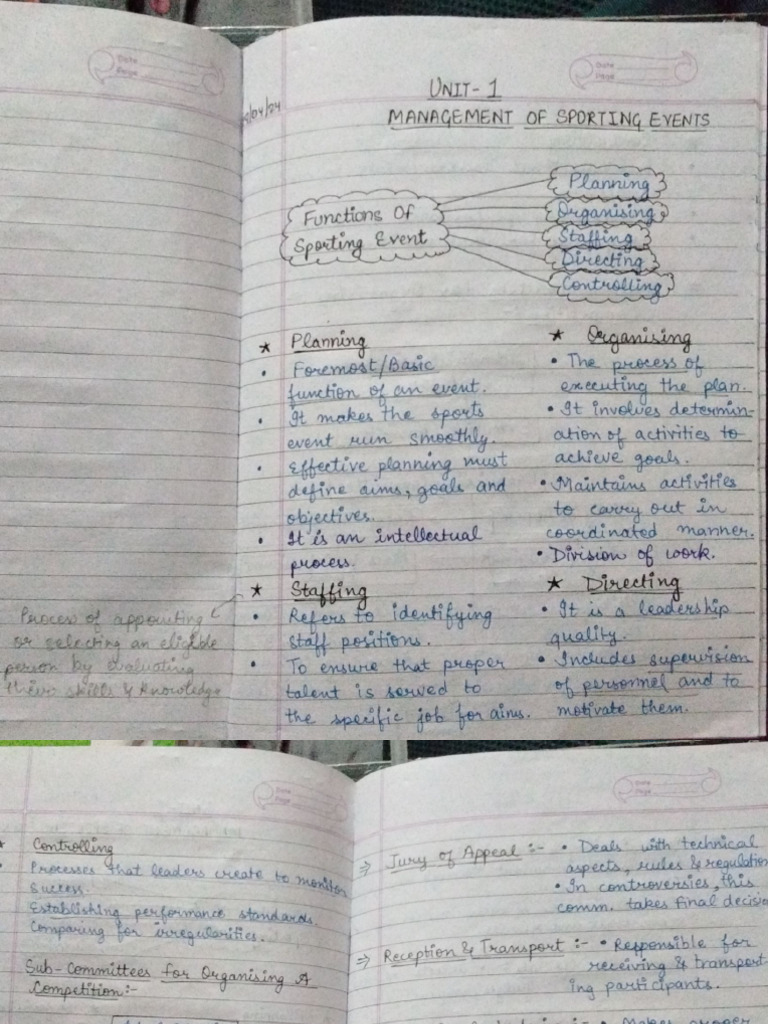 Date
Page
Date
Page
/04/24
UNIT- 1
MANAGEMENT OF SPORTING EVENTS
Functions Of
Sporting Event
Planning
Organising
Staffing
Directing
Controlling
★ Planning
• Foremost/Basic
function of an event.
• It makes the sports
event run smoothly.
• Effective planning must
define aims, goals and
objectives.
• It is an intellectual
process.
★ Organising
• The process of
executing the plan.
• It involves determin-
ation of activities to
achieve goals.
• Maintains activities
to carry out in
coordinated manner.
• Division of work.
★ Staffing
Process of appointing
or selecting an eligible
person by evaluating
their skills & knowledge
• Refers to identifying
staff positions.
• To ensure that proper
talent is served to
the specific job for aims.
★ Directing
• It is a leadership
quality.
• Includes supervision
of personnel and to
motivate them.
Date
Page
Date
Page
★ Controlling
• Processes that leaders create to monitor
success.
Establishing performance standards.
Comparing for irregularities.
Sub-Committees for Organising A
Competition:-
⇒ Jury of Appeal :- • Deals with technical
aspects, rules & regulation
• In controversies, this
comm. takes final decisio
⇒ Reception & Transport :- • Responsible for
receiving & transport-
ing participants.
• Makes proper